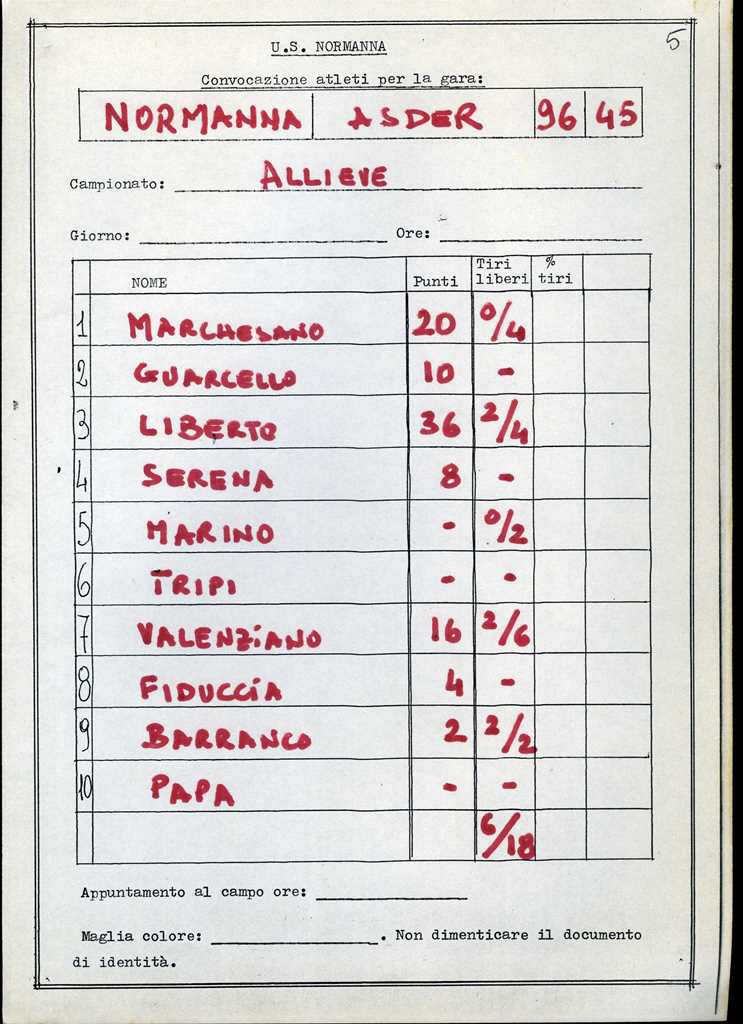 5
U.S. NORMANNA
Convocazione atleti per la gara:
NORMANNA ASDER 96 45
Campionato: ALLIEVE
Giorno: Ore:
NOME Punti Tiri liberi % tiri
1 MARCHESANO 20 0/4
2 GUARCELLO 10 -
3 LIBERTO 36 2/4
4 SERENA 8 -
5 MARINO - 0/2
6 TRIPI - -
7 VALENZIANO 16 2/6
8 FIDUCCIA 4 -
9 BARRANCO 2 2/2
10 PAPA - -
6/18
Appuntamento al campo ore:
Maglia colore: . Non dimenticare il documento
di identità.